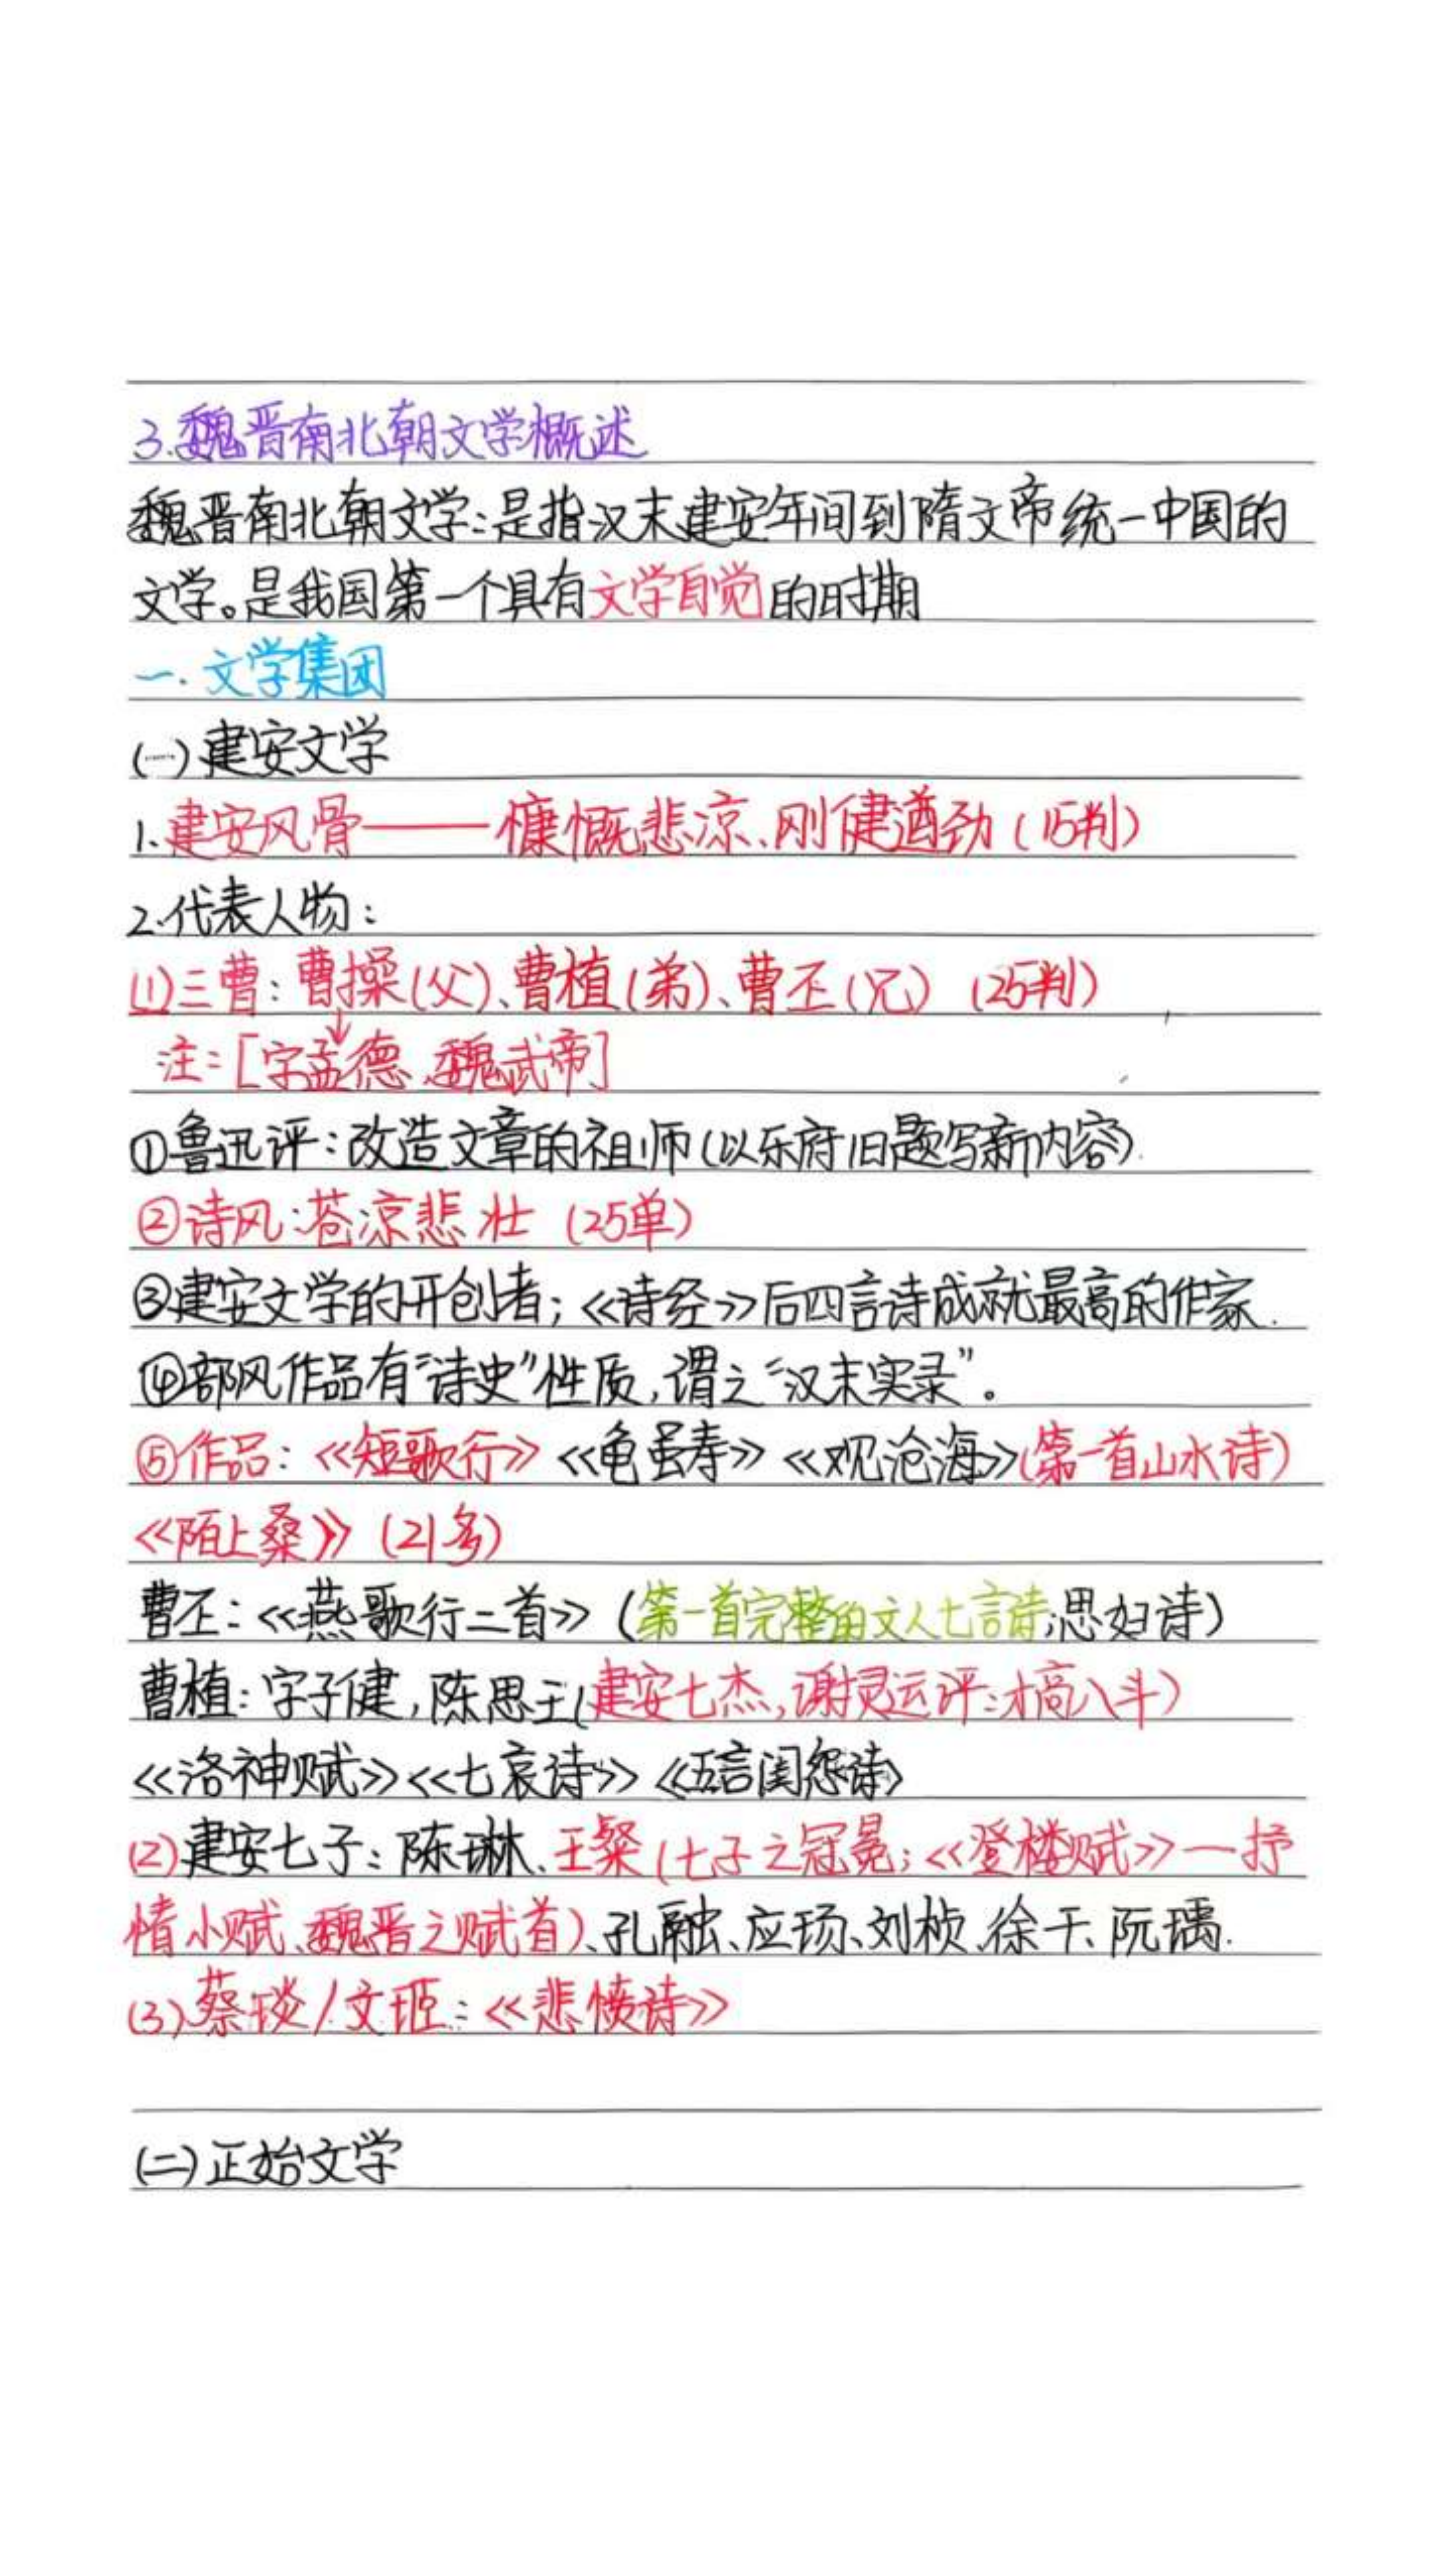 3.魏晋南北朝文学概述
魏晋南北朝文学:是指汉末建安年间到隋文帝统一中国的
文学。是我国第一个具有文学自觉的时期
一.文学集团
(一)建安文学
1.建安风骨——慷慨悲凉、刚健遒劲(15判)
2.代表人物:
(1)三曹:曹操(父)、曹植(弟)、曹丕(兄)(25判)
注:[字孟德、魏武帝]
①鲁迅评:改造文章的祖师(以乐府旧题写新内容).
②诗风:苍凉悲壮(25单)
③建安文学的开创者;《诗经》后四言诗成就最高的作家.
④部风作品有“诗史”性质,谓之“汉末实录”。
⑤作品:《短歌行》《龟虽寿》《观沧海》(第一首山水诗)
《陌上桑》(21多)
曹丕:《燕歌行二首》(第一首完整的文人七言诗;思妇诗)
曹植:字子健,陈思王(建安七杰,谢灵运评:才高八斗)
《洛神赋》《七哀诗》《五言闺怨诗》
(2)建安七子:陈琳、王粲(七子之冠冕;《登楼赋》—抒
情小赋、魏晋之赋首)、孔融、应玚、刘桢、徐干、阮瑀.
(3)蔡琰/文姬:《悲愤诗》
(二)正始文学